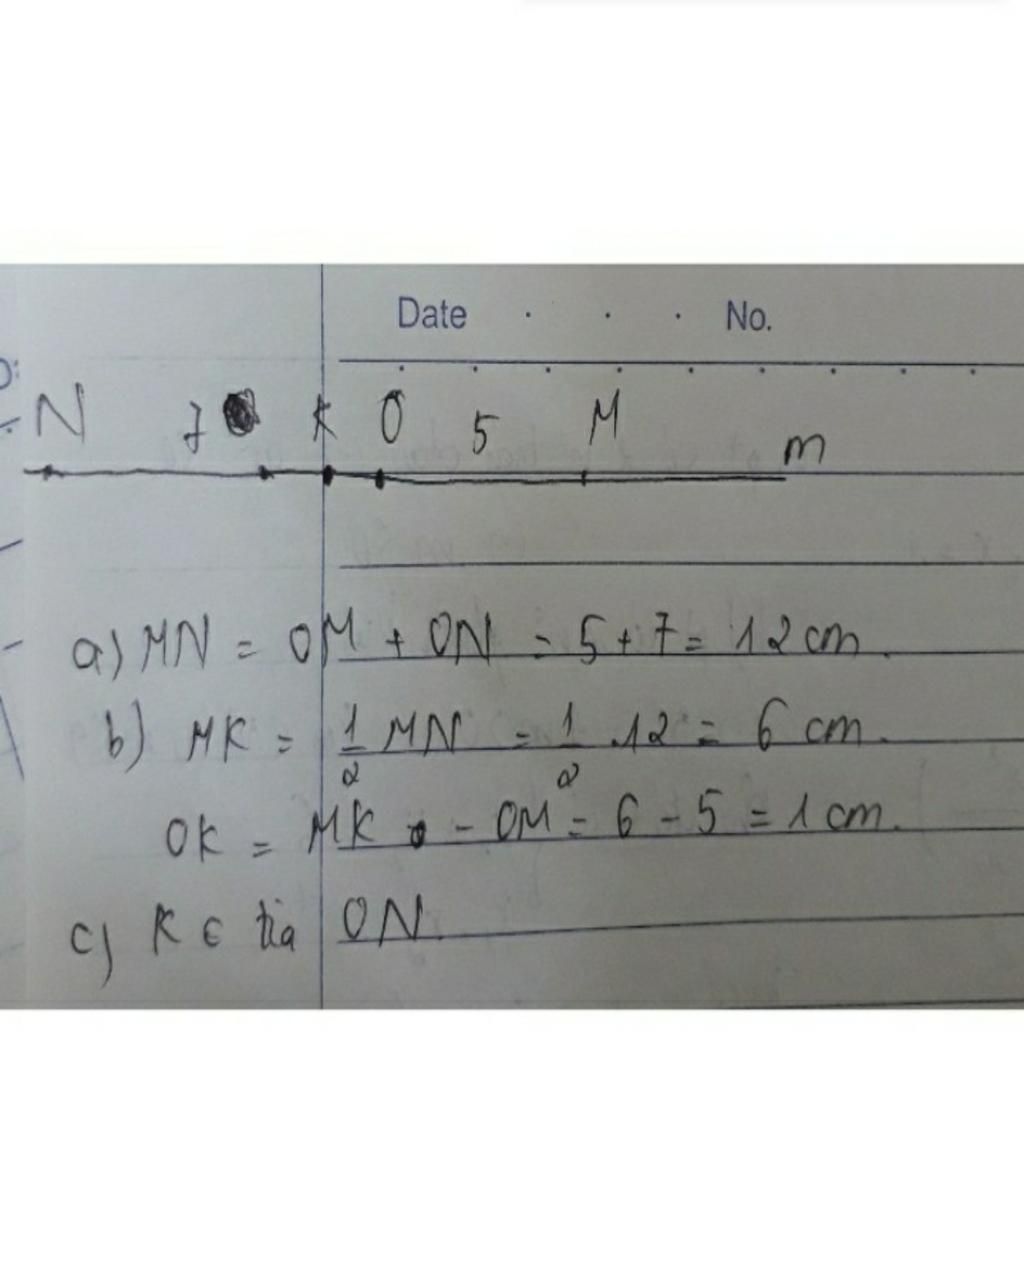 Date . . . No.
N 7 K O 5 M m
a) MN = OM + ON = 5 + 7 = 12 cm.
b) MK = 1/2 MN = 1/2 .12 = 6 cm.
OK = MK - OM = 6 - 5 = 1 cm.
c) K ∈ tia ON.